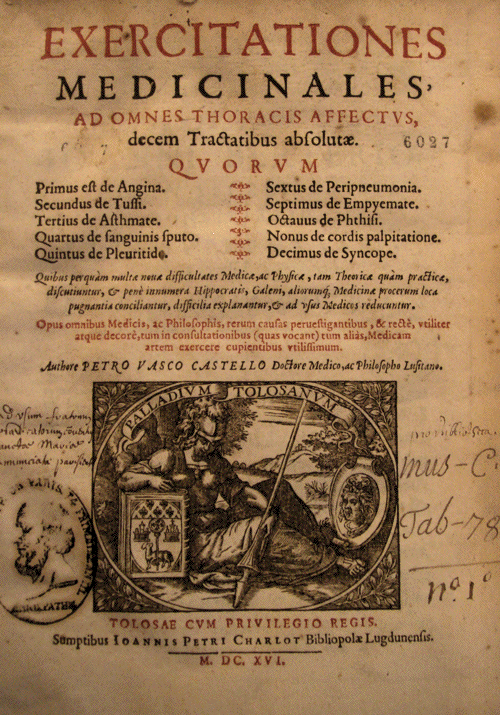 EXERCITATIONES
MEDICINALES,
AD OMNES THORACIS AFFECTVS,
decem Tractatibus absolutæ.
6027
QVORVM
Primus est de Angina.
Secundus de Tussi.
Tertius de Asthmate.
Quartus de sanguinis sputo.
Quintus de Pleuritide.
Sextus de Peripneumonia.
Septimus de Empyemate.
Octauus de Phthisi.
Nonus de cordis palpitatione.
Decimus de Syncope.
Quibus perquàm multæ nouæ difficultates Medicæ, ac Physicæ, tam Theoricæ quàm practicæ,
discutiuntur, & penè innumera Hippocratis, Galeni, aliorumq́; Medicinæ procerum loca
pugnantia conciliantur, difficilia explanantur, & ad vsus Medicos reducuntur.
Opus omnibus Medicis, ac Philosophis, rerum causas peruestigantibus, & rectè, vtiliter
atque decorè, tum in consultationibus (quas vocant) tum aliàs, Medicam
artem exercere cupientibus vtilissimum.
Authore PETRO VASCO CASTELLO Doctore Medico, ac Philosopho Lusitano.
PALLADIVM TOLOSANVM
mus-C.
Tab-78
nº. 1º
TOLOSAE CVM PRIVILEGIO REGIS.
Sumptibus IOANNIS PETRI CHARLOT Bibliopolæ Lugdunensis.
M. DC. XVI.